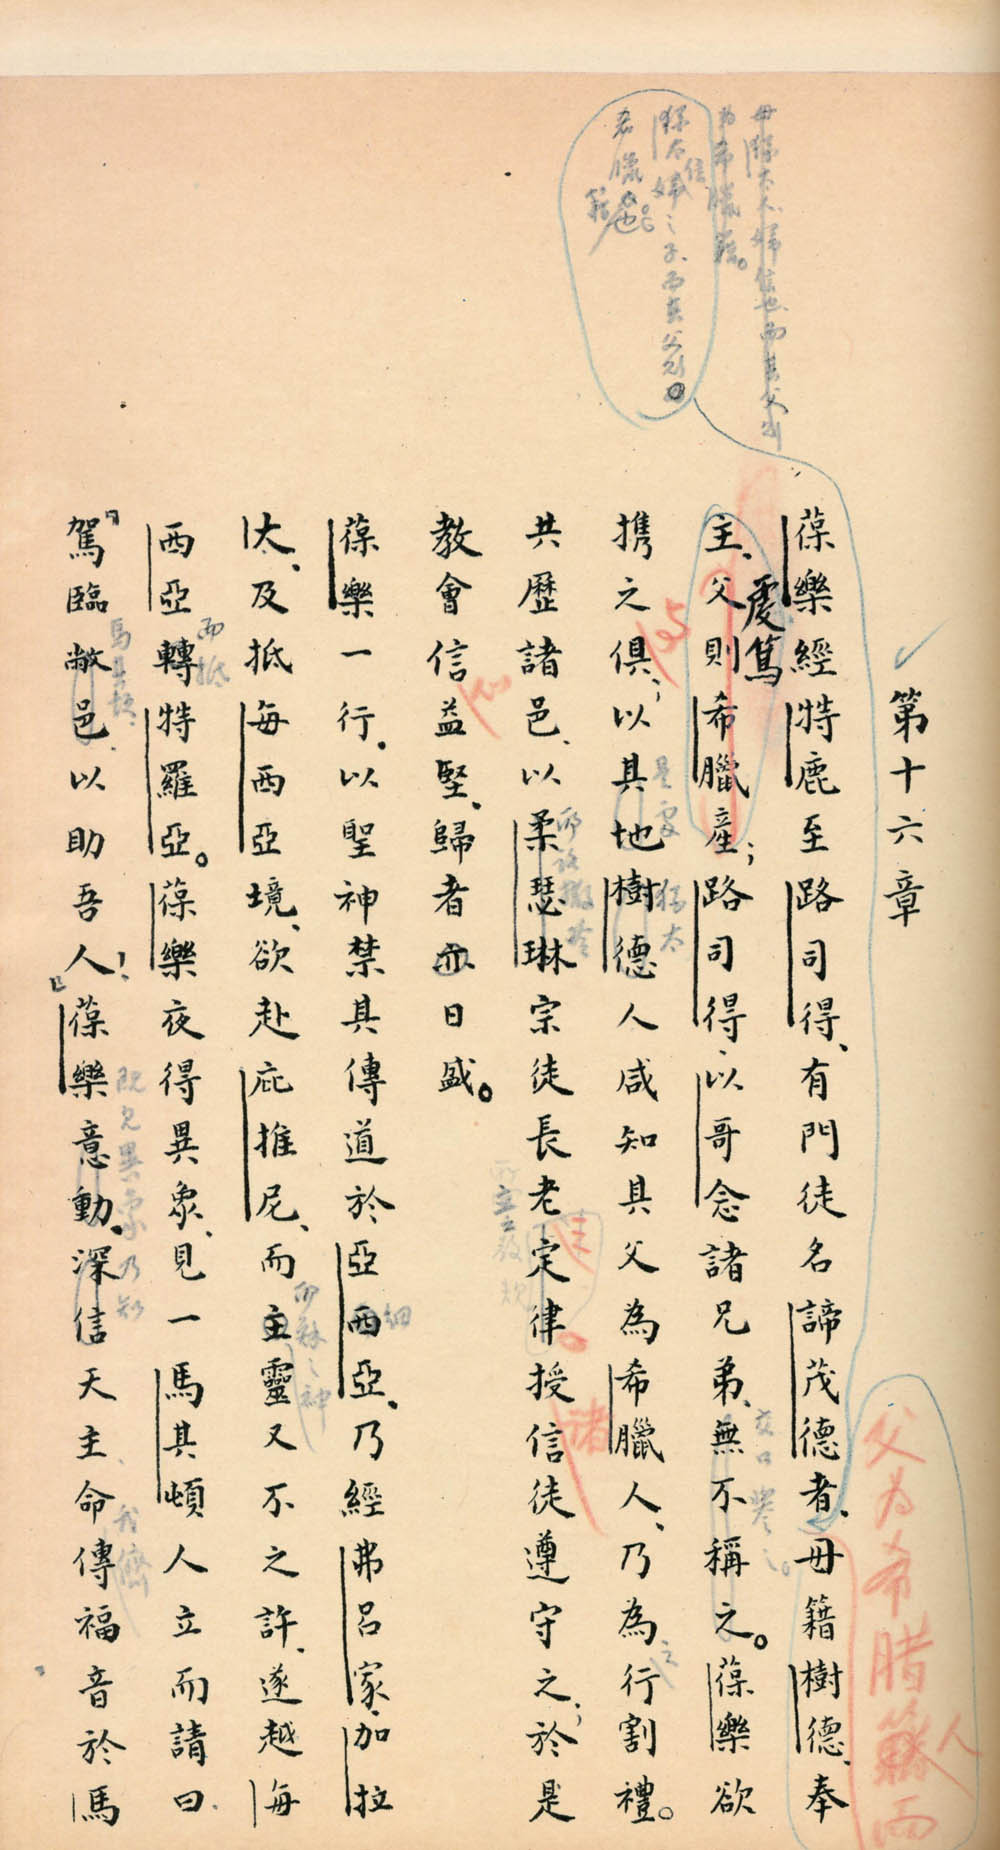 第十六章
葆樂經特鹿至路司得、有門徒名諦茂德者、母籍樹德、奉
主、虔篤父則希臘產；路司得以哥念諸兄弟、無不稱之。葆樂欲
携之俱；以其地樹德人咸知其父為希臘人、乃為行割禮。
共歷諸邑、以柔瑟琳宗徒長老定律授信徒遵守之；於是
教會信益堅、歸者亦日盛。
葆樂一行。以聖神禁其傳道於亞西亞、乃經弗呂家、加拉
太、及抵每西亞境、欲赴庇推尼、而主靈又不之許、遂越每
西亞轉特羅亞。葆樂夜得異象、見一馬其頓人立而請曰、
『駕臨敝邑以助吾人！』葆樂意動。深信天主命傳福音於馬
母猶太人婦信也而其父則
為希臘籍。
猶太信婦之子、而其父則
希臘籍也
父為希腊籍人而
是處
猶太
交口譽之。
耶路撒冷
所立教規
諸
細
而穌之神
而抵
馬其頓
既見異象乃知
我儕
之